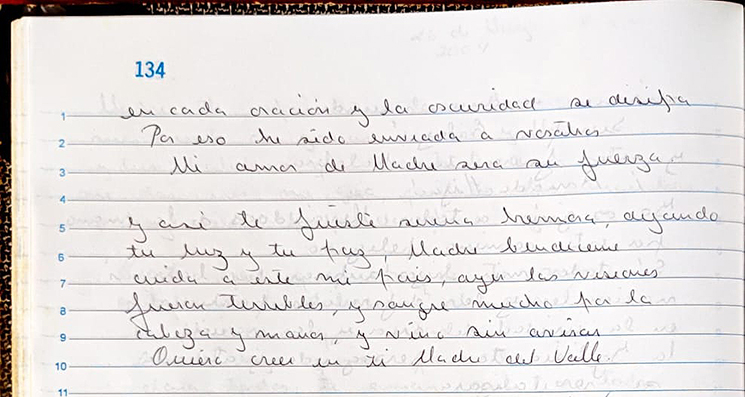 134
1 en cada oración y la oscuridad se disipa
2 Por eso he sido enviada a vosotros
3 Mi amor de Madre sera su fuerza
4
5 y asi te fuiste reina hermosa, dejando
6 tu luz y tu paz, Madre bendiceme
7 cuida a este mi pais, ayer las visiones
8 fueron terribles, y sangre mucho por la
9 cabeza y manos, y vino sin avisar
10 Quiero creer en ti Madre del Valle.
11